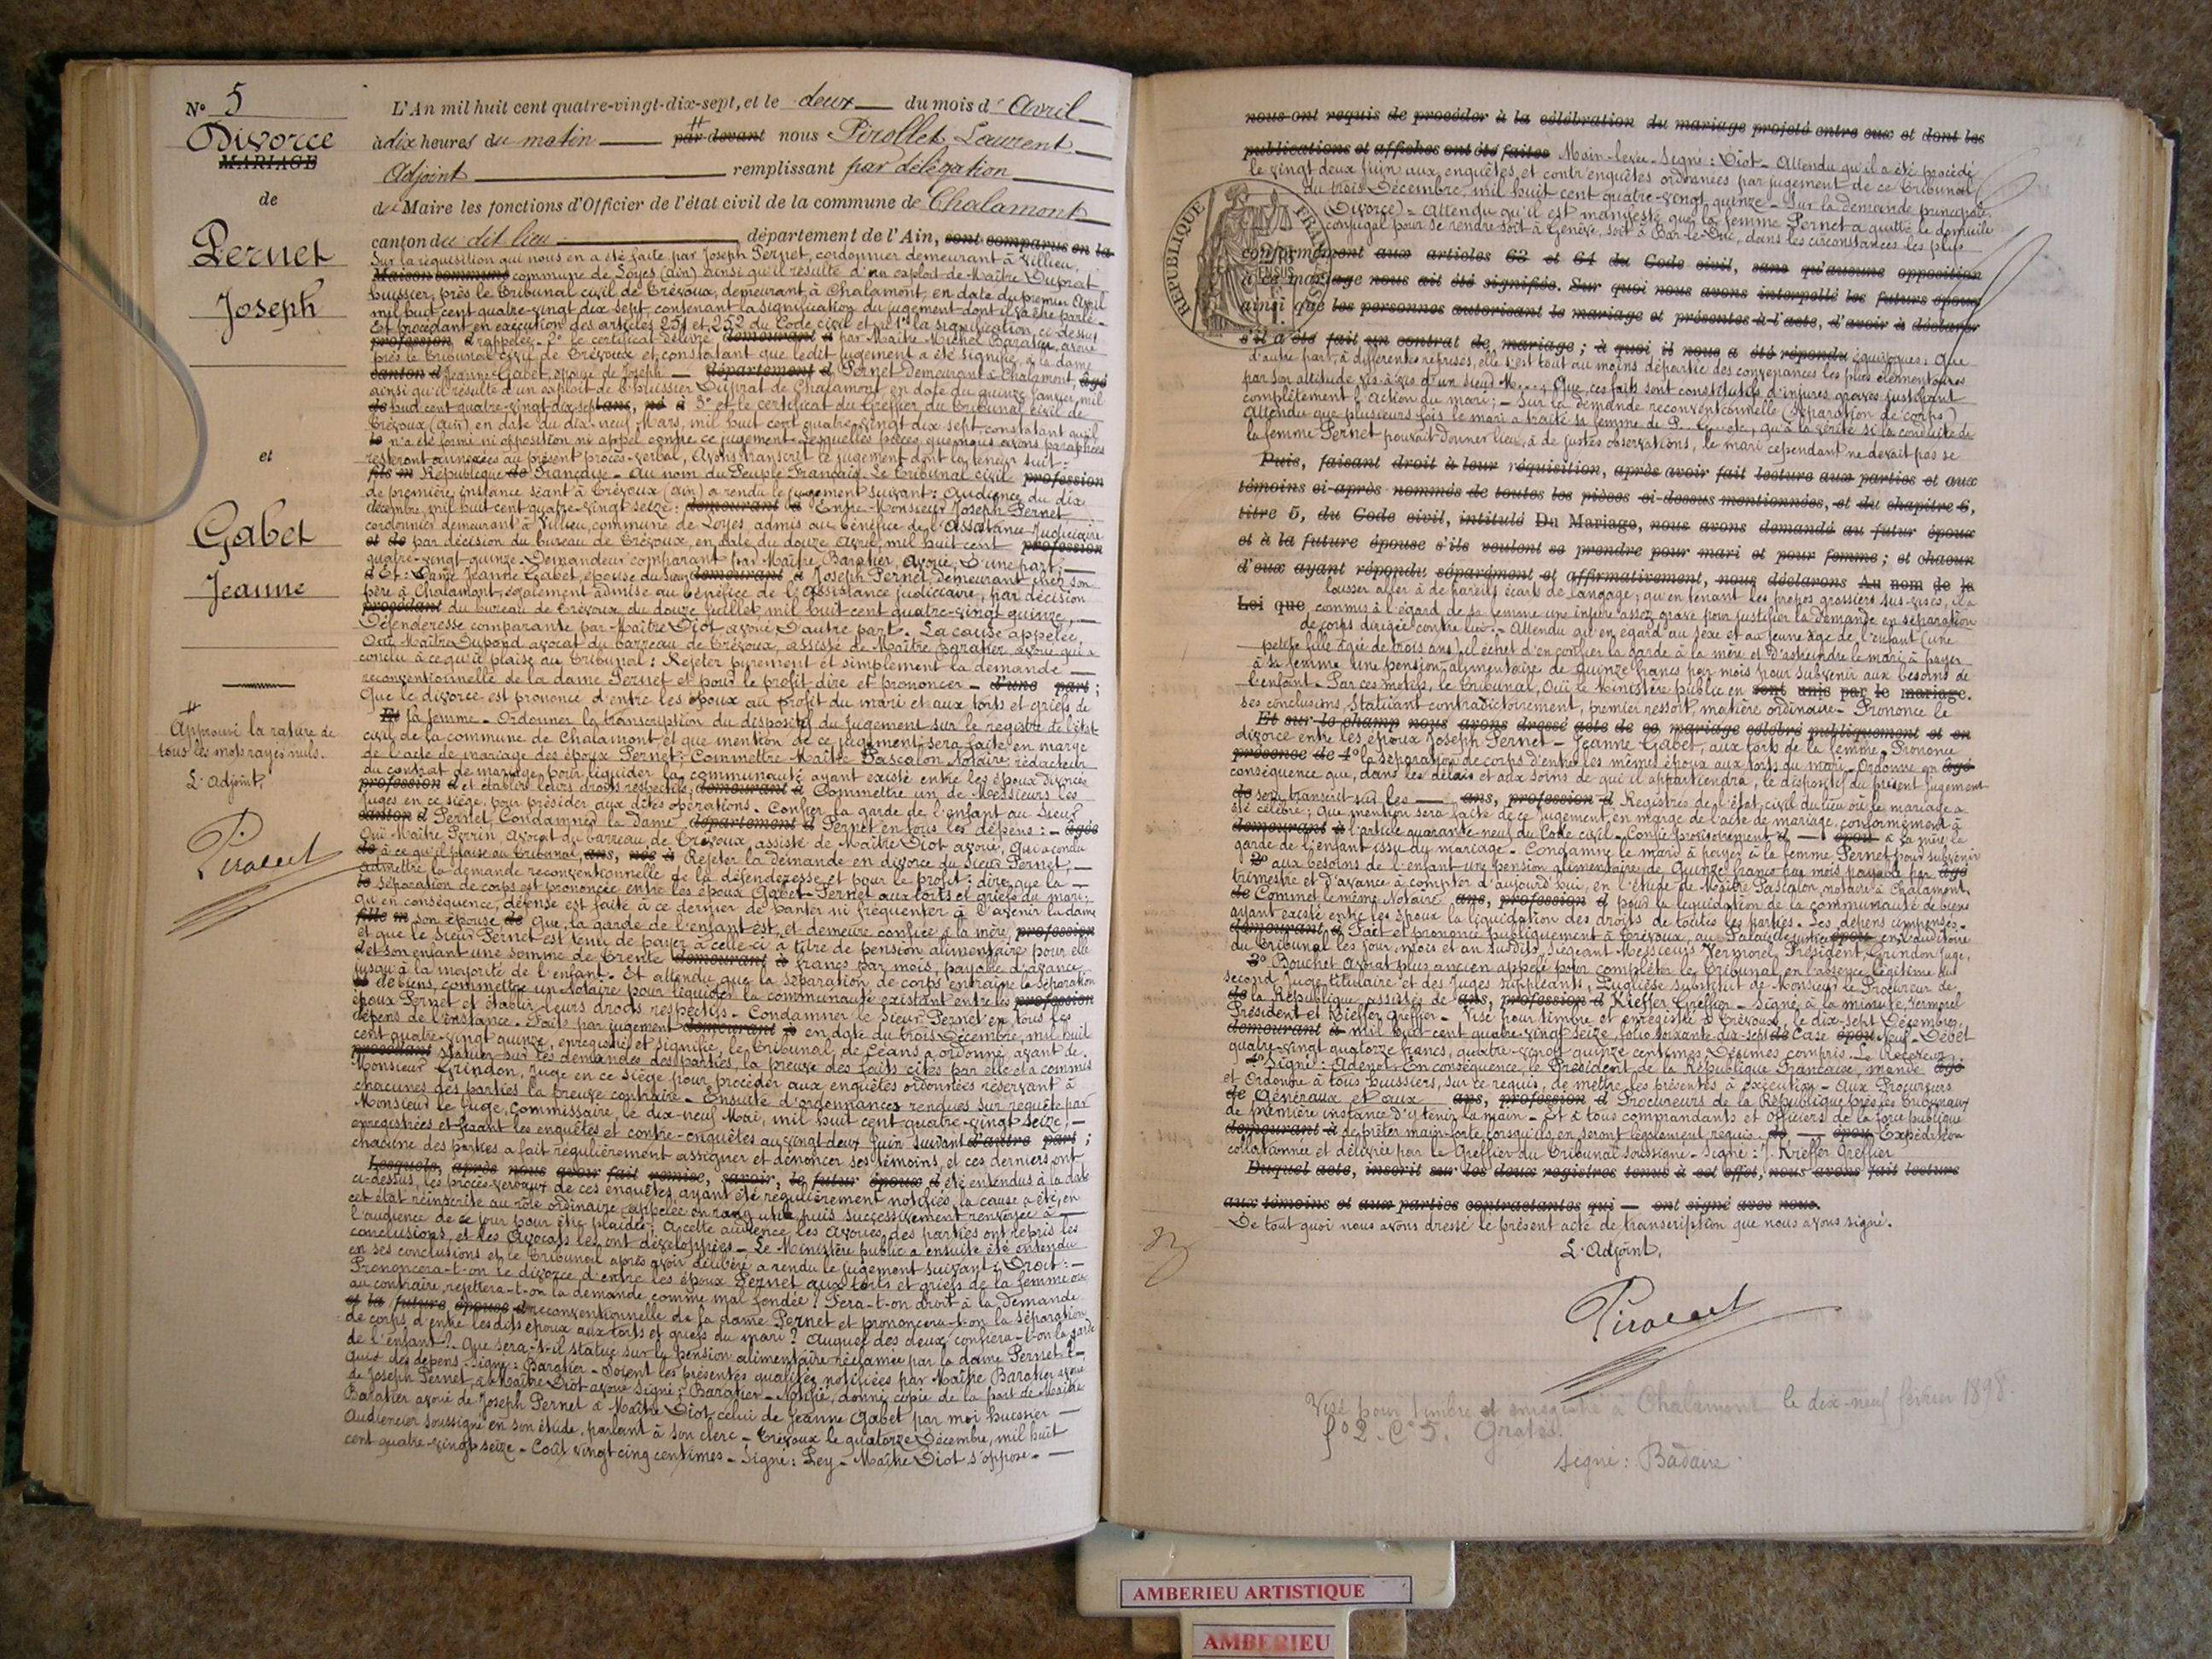 Nº 5
Divorce
MARIAGE
de
Pernet
Joseph
et
Gabet
Jeanne
#
Approuvé la rature de
tous les mots rayés nuls.
L'Adjoint,
Pirollet
L'An mil huit cent quatre-vingt-dix-sept, et le deux du mois d'Avril
à dix heures du matin # par devant nous Pirollet Laurent
Adjoint remplissant par délégation
du Maire les fonctions d'Officier de l'état civil de la commune de Chalamont
canton du dit lieu département de l'Ain, sont comparus en la
Sur la réquisition qui nous en a été faite par Joseph Pernet, cordonnier demeurant à Villieu,
Maison commune commune de Loyes (Ain) ainsi qu'il résulte d'un exploit de Maître Duprat
huissier, près le Tribunal civil de Trévoux, demeurant à Chalamont, en date du premier Avril
mil huit cent quatre-vingt dix sept, contenant la signification du jugement dont il va être parlé.
Et procédant en exécution des articles 251 et 252 du Code civil et vu 1º la signification, ci-dessus
profession d rappelée. 2º le certificat délivré demeurant à par Maître Michel Baratier, avoué
près le Tribunal civil de Trévoux et constatant que ledit jugement a été signifié à la dame
canton d Jeanne Gabet, épouse de Joseph département d Pernet demeurant à Chalamont, âgé
ainsi qu'il résulte d'un exploit de l'huissier Duprat de Chalamont, en date du quinze Janvier, mil
de huit cent quatre-vingt dix sept ans, né à 3º et le certificat du Greffier du Tribunal civil de
Trévoux (Ain), en date du dix-neuf Mars, mil huit cent quatre-vingt dix sept, constatant qu'il
le n'a été formé ni opposition ni appel contre ce jugement. Lesquelles pièces que nous avons paraphées
resteront annexées au présent procès-verbal, Avons transcrit le jugement dont la teneur suit:
fils en République de Française - Au nom du Peuple Français. Le Tribunal civil profession
de première instance séant à Trévoux (Ain) a rendu le jugement suivant: Audience du dix
décembre, mil huit cent quatre-vingt seize: demeurant à Entre Monsieur Joseph Pernet
cordonnier demeurant à Villieu, commune de Loyes, admis au bénéfice de l'Assistance Judiciaire
et de par décision du bureau de Trévoux, en date du douze Avril, mil huit cent profession
quatre-vingt-quinze. Demandeur comparant par Maître Baratier, Avoué, D'une part;
d Et: Dame Jeanne Gabet, épouse du Sieur demeurant à Joseph Pernet, demeurant chez son
père à Chalamont, également admise au bénéfice de l'Assistance judiciaire, par décision
procédant du bureau de Trévoux du douze Juillet mil huit cent quatre-vingt quinze,
Défenderesse comparante par Maître Diot avoué D'autre part. La cause appelée,
Ouï Maître Dupond avocat du barreau de Trévoux, assisté de Maître Baratier avoué qui a
conclu à ce qu'il plaise au Tribunal: Rejeter purement et simplement la demande
reconventionnelle de la dame Pernet et pour le profit dire et prononcer d'une part;
Que le divorce est prononcé d'entre les époux au profit du mari et aux torts et griefs de
Et la femme - Ordonner la transcription du dispositif du Jugement sur le registre de l'état
civil de la commune de Chalamont, et que mention de ce jugement sera faite en marge
de l'acte de mariage des époux Pernet; Commettre Maître Pascalon Notaire, rédacteur
du contrat de mariage, pour liquider la communauté ayant existé entre les époux divorcés
profession d et établir leurs droits respectifs; demeurant à Commettre un de Messieurs les
Juges en ce siège, pour présider aux dites opérations. Confier la garde de l'enfant au Sieur
canton d Pernet, Condamner la dame département d Pernet en tous les dépens: - âgée
Ouï Maître Perrin, avocat du barreau de Trévoux, assisté de Maître Diot avoué, qui a conclu
de à ce qu'il plaise au Tribunal, ans, née à Rejeter la demande en divorce du Sieur Pernet,
admettre la demande reconventionnelle de la défenderesse et pour le profit: dire que la
le séparation de corps est prononcée entre les époux Gabet-Pernet aux torts et griefs du mari;
qu'en conséquence, défense est faite à ce dernier de hanter ni fréquenter à l'avenir la dame
fille en son épouse, de Que, la garde de l'enfant est, et demeure confiée à la mère, profession
et que le Sieur Pernet est tenu de payer à celle-ci à titre de pension alimentaire pour elle
d et son enfant une somme de trente demeurant à francs par mois, payable d'avance,
jusqu'à la majorité de l'enfant. Et attendu que la séparation de corps entraîne la séparation
de biens, commettre un Notaire pour liquider la communauté existant entre les profession
époux Pernet et établir leurs droits respectifs - Condamner le Sieur Pernet en tous les
dépens de l'instance. Faits par jugement demeurant à en date du trois Décembre, mil huit
cent quatre-vingt quinze, enregistré et signifié, le Tribunal de Céans a ordonné avant de
procédant statuer sur les demandes des parties, la preuve des faits cités par elle et a commis
Monsieur Grindon, Juge en ce siège pour procéder aux enquêtes ordonnées réservant à
chacunes des parties la preuve contraire - Ensuite d'ordonnances rendues sur requête par
Monsieur le Juge Commissaire, le dix-neuf Mai, mil huit cent quatre-vingt seize,
enregistrées et fixant les enquêtes et contre-enquêtes au vingt-deux Juin suivant d'autre part;
chacune des parties a fait régulièrement assigner et dénoncer ses témoins, et ces derniers ont
Lesquels, après nous avoir fait remise, savoir, le futur époux d été entendus à la date
ci-dessus, les procès-verbaux de ces enquêtes ayant été régulièrement notifiés, la cause a été, en
cet état réinscrite au rôle ordinaire, appelée en rang utile, puis successivement renvoyée à
l'audience de ce jour pour être plaidée; A cette audience les avoués des parties ont repris les
conclusions, et les Avocats les ont développées - Le Ministère public a ensuite été entendu
en ses conclusions et le Tribunal après avoir délibéré a rendu le jugement suivant: Droit:
Prononcera-t-on le divorce d'entre les époux Pernet aux torts et griefs de la femme ou
au contraire, rejettera-t-on la demande comme mal fondée? Fera-t-on droit à la demande
et la future épouse d reconventionnelle de la dame Pernet et prononcera-t-on la séparation
de corps d'entre lesdits époux aux torts et griefs du mari? Auquel des deux confiera-t-on la garde
de l'enfant? Que sera-t-il statué sur la pension alimentaire réclamée par la dame Pernet?
Quid des dépens. Signé: Baratier - Soient les présentes qualités notifiées par Maître Baratier avoué
de Joseph Pernet, à Maître Diot avoué Signé: Baratier - Notifié, donné copie de la part de Maître
Baratier avoué de Joseph Pernet à Maître Diot celui de Jeanne Gabet par moi huissier
Audiencier soussigné en son étude, parlant à son clerc - Trévoux le quatorze Décembre, mil huit
cent quatre-vingt seize - Coût vingt-cinq centimes - Signé: Ley - Maître Diot s'oppose.
nous ont requis de procéder à la célébration du mariage projeté entre eux et dont les
publications et affiches ont été faites Main-levée - Signé: Diot - Attendu qu'il a été procédé
le vingt deux Juin aux enquêtes et contr'enquêtes ordonnées par jugement de ce Tribunal
du trois Décembre, mil huit cent quatre-vingt quinze - Sur la demande principale.
(Divorce) = Attendu qu'il est manifesté que la femme Pernet a quitté le domicile
conjugal pour se rendre soit à Genève, soit à Bar-le-Duc, dans les circonstances les plus
RÉPUBLIQUE FRANÇAISE
conformément aux articles 63 et 64 du Code civil, sans qu'aucune opposition
à ce mariage nous ait été signifiée. Sur quoi nous avons interpellé les futurs époux
ainsi que les personnes autorisant le mariage et présentes à l'acte, d'avoir à déclarer
s'il a été fait un contrat de mariage; à quoi il nous a été répondu équivoques; Que
d'autre part, à différentes reprises, elle s'est tout au moins départie des convenances les plus élémentaires
par son attitude vis-à-vis d'un sieur M....; Que, ces faits sont constitutifs d'injures graves justifiant
complètement l'action du mari; - Sur la demande reconventionnelle (Séparation de corps)
Attendu que plusieurs fois le mari a traité sa femme de P.. qu'à la vérité si la conduite de
la femme Pernet pouvait donner lieu, à de justes observations, le mari cependant ne devait pas se
Puis, faisant droit à leur réquisition, après avoir fait lecture aux parties et aux
témoins ci-après nommés de toutes les pièces ci-dessus mentionnées, et du chapitre 6,
titre 5, du Code civil, intitulé Du Mariage, nous avons demandé au futur époux
et à la future épouse s'ils veulent se prendre pour mari et pour femme; et chacun
d'eux ayant répondu séparément et affirmativement, nous déclarons Au nom de la
laisser aller à de pareils écart de langage; qu'en tenant les propos grossiers sus-visés, il a
Loi que commis à l'égard de sa femme une injure assez grave pour justifier la demande en séparation
de corps dirigée contre lui. - Attendu qu'en égard au sexe et au jeune âge de l'enfant (une
petite fille âgée de trois ans) il échet d'en confier la garde à la mère et d'astreindre le mari à payer
à sa femme une pension alimentaire de quinze francs par mois pour subvenir aux besoins de
l'enfant. Par ces motifs, le Tribunal, Ouï le Ministère public en sont unis par le mariage.
ses conclusions, Statuant contradictoirement, premier ressort, matière ordinaire - Prononce le
Et sur-le-champ nous avons dressé acte de ce mariage célébré publiquement et en
divorce entre les époux Joseph Pernet - Jeanne Gabet, aux torts de la femme, Prononce
présence de 1º la séparation de corps d'entre les mêmes époux aux torts du mari - Ordonne en âgé
conséquence que, dans les délais et aux soins de qui il appartiendra, le dispositif du présent Jugement
de sera transcrit sur les ans, profession d Registres de l'état civil du lieu où le mariage a
été célébré; Que mention sera faite de ce Jugement, en marge de l'acte de mariage, conformément à
demeurant à l'article quarante-neuf du Code civil - Confie provisoirement d époux à la mère, la
garde de l'enfant issu du mariage - Condamne le mari à payer à la femme Pernet pour subvenir
2º aux besoins de l'enfant une pension alimentaire de Quinze francs par mois payable par âgé
trimestre et d'avance à compter d'aujourd'hui, en l'étude de Maître Pascalon, notaire à Chalamont,
de Commet le même Notaire ans, profession d pour la liquidation de la communauté de biens
ayant existé entre les époux la liquidation des droits de toutes les parties. Les dépens compensés.
demeurant à Fait et prononcé publiquement à Trévoux, au Palais de Justice époux en l'auditoire
du Tribunal les jour, mois et an susdits, Siégeant Messieurs Vermorel, Président, Grindon Juge,
3º Bouchet Avocat plus ancien appelé pour compléter le Tribunal, en l'absence légitime du
second Juge titulaire et des Juges suppléants, Pugliese substitut de Monsieur le Procureur de
de la République, assistés de ans, profession d Kieffer Greffier - Signé à la minute, Vermorel
Président et Kieffer Greffier - Visé pour timbre et enregistré à Trévoux, le dix-sept Décembre,
demeurant à mil huit cent quatre-vingt seize, folio soixante dix-sept de Case époux neuf - Débet
quatre-vingt quatorze francs, quatre-vingt quinze centimes, Décimes compris. Le Receveur,
4º Signé: Adenot. En conséquence, le Président de la République Française, mande âgé
et Ordonne à tous huissiers, sur ce requis, de mettre les présentes à exécution - Aux Procureurs
de Généraux et aux ans, profession d Procureurs de la République près les Tribunaux
de première instance d'y tenir la main - Et à tous commandants et officiers de la force publique
demeurant à de prêter main-forte lorsqu'ils en seront légalement requis. de époux Expédition
collationnée et délivrée par le Greffier du Tribunal soussigné - Signé: J. Kieffer Greffier
Duquel acte, inscrit sur les deux registres tenus à cet effet, nous avons fait lecture
aux témoins et aux parties contractantes qui ont signé avec nous.
De tout quoi nous avons dressé le présent acte de transcription que nous avons signé.
L'Adjoint,
Pirollet
Visé pour timbre et enregistré à Chalamont le dix-neuf février 1898.
fº 2. Cº 5. Gratis.
Signé: Badaire
AMBERIEU ARTISTIQUE
AMBERIEU